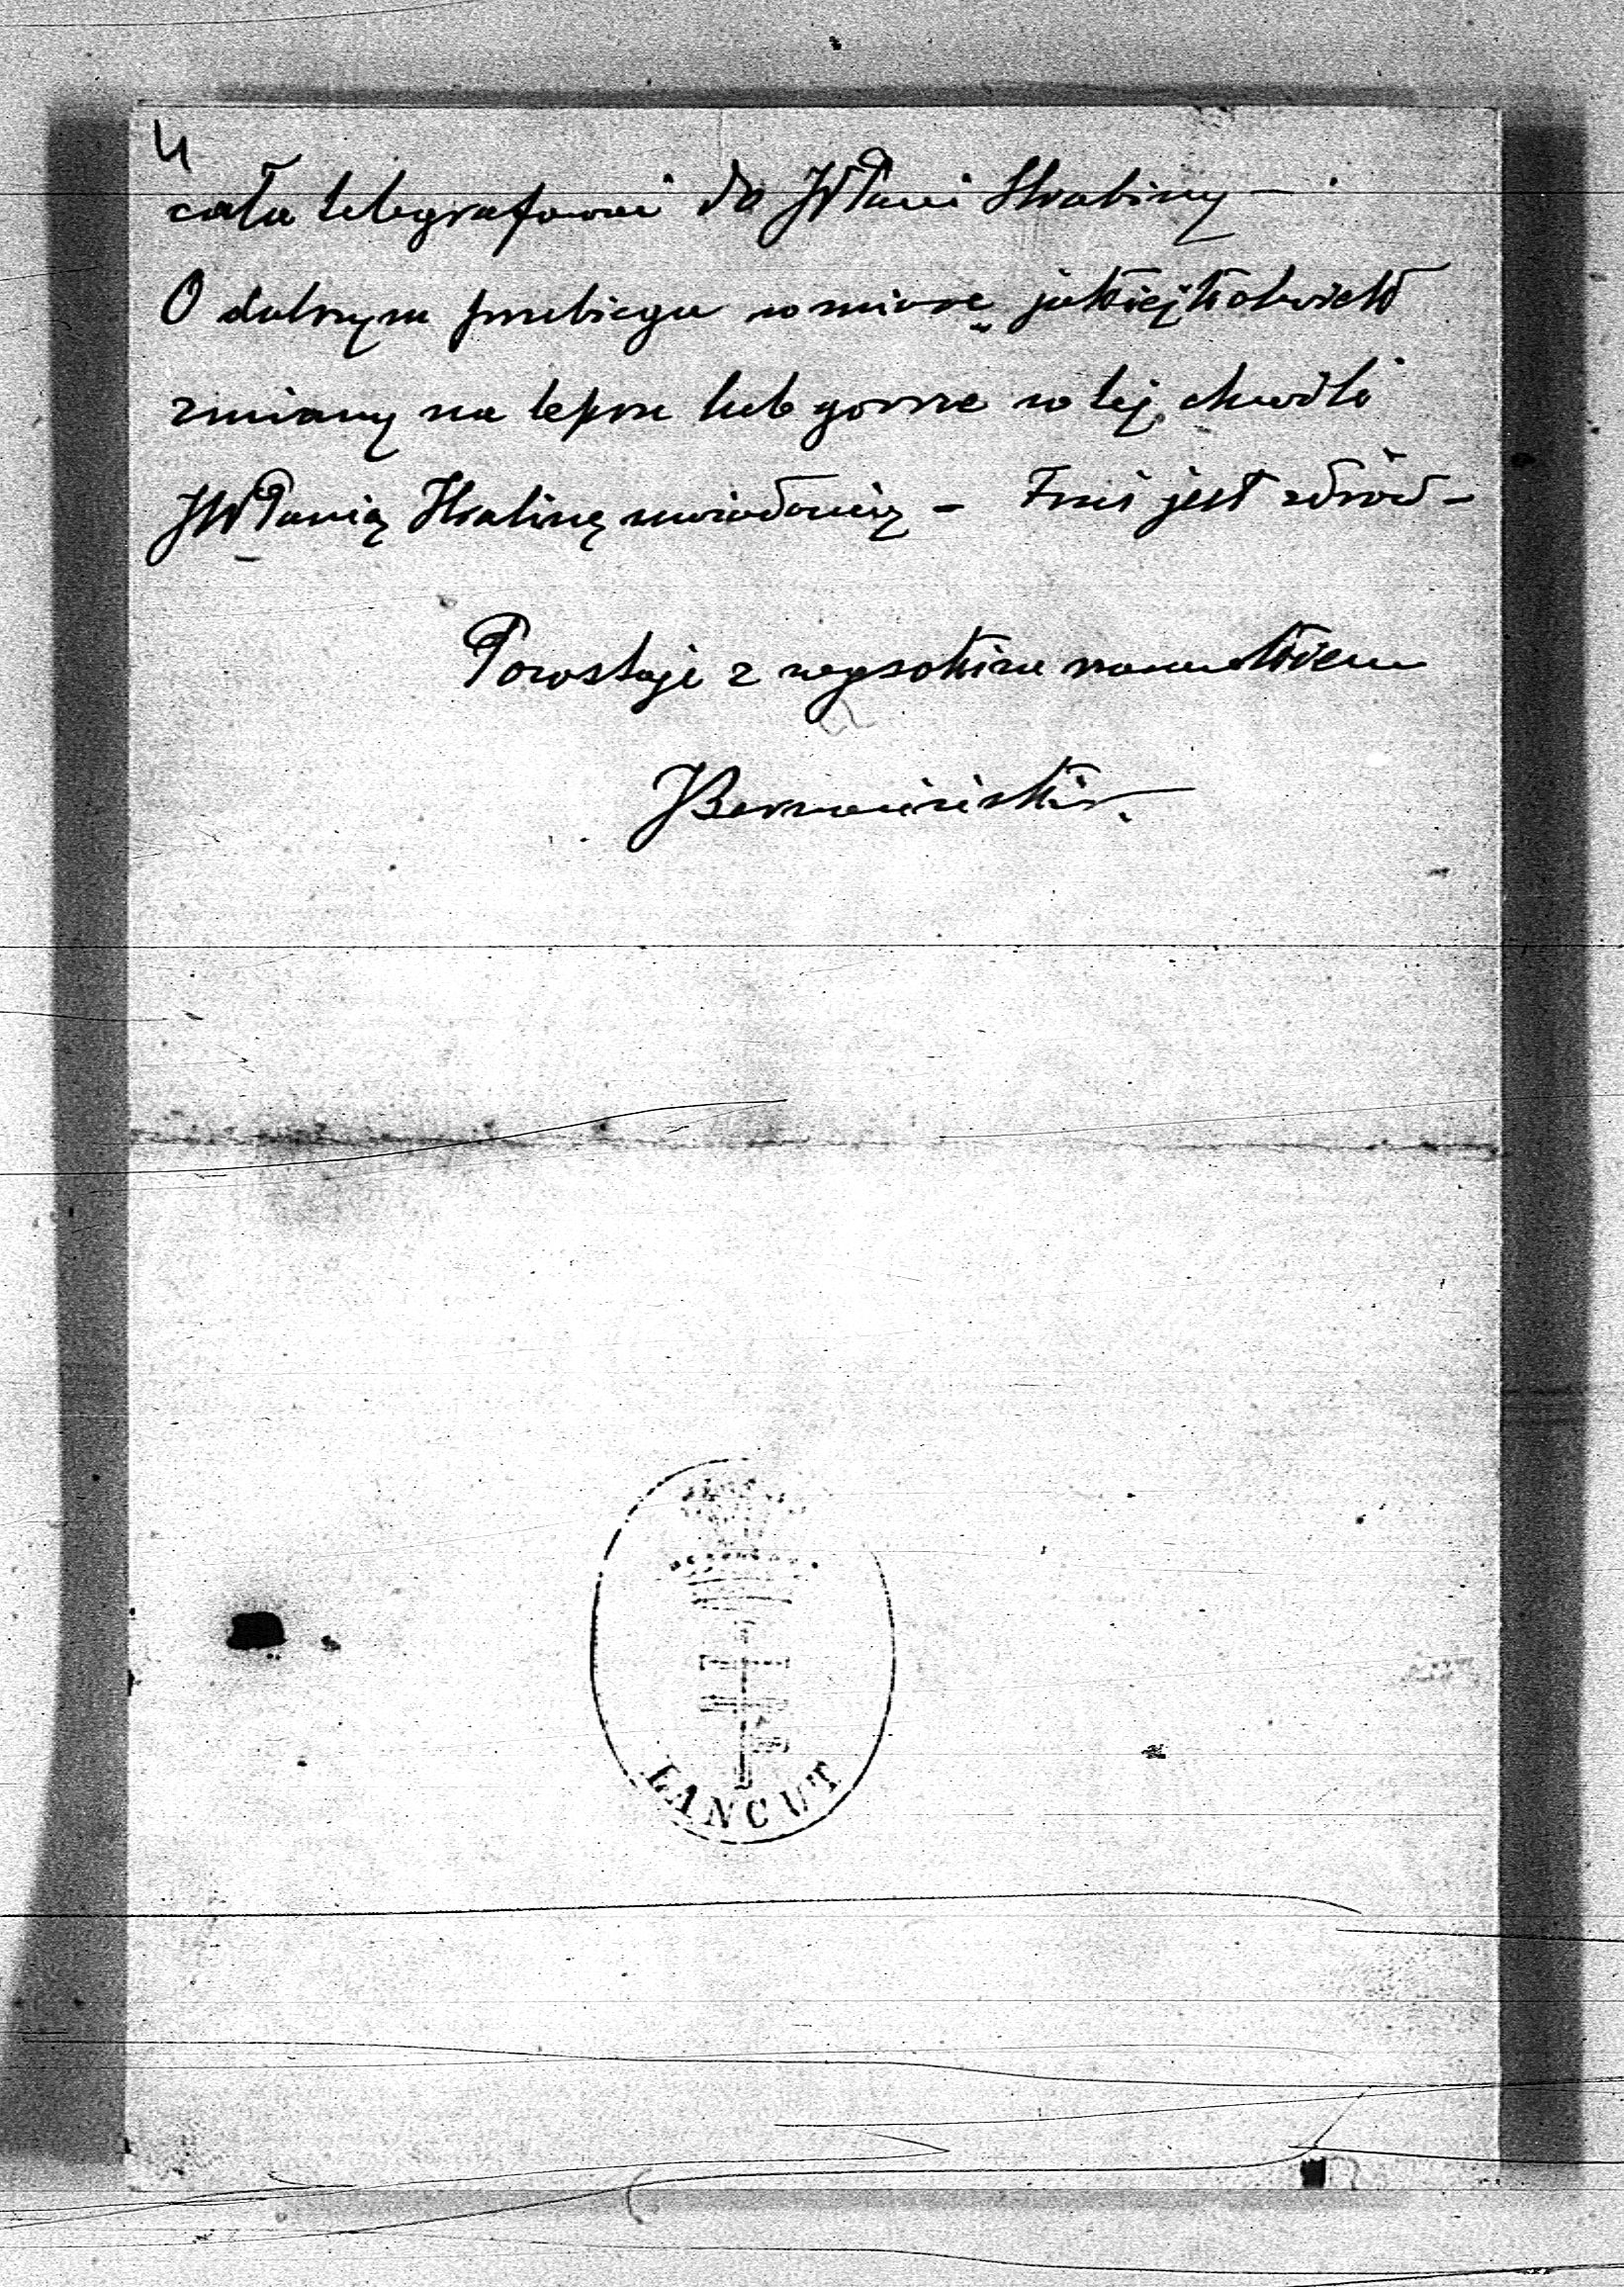 4
cała telegrafować do JWPani Hrabiny —
O dalszym przebiegu w miarę jakiejkolwiek
zmiany na lepsze lub gorsze w tej chwili
JWPanią Hrabinę uwiadomię — Fraś jest zdrów —
Pozostaję z wysokim szacunkiem
ŁANCUT